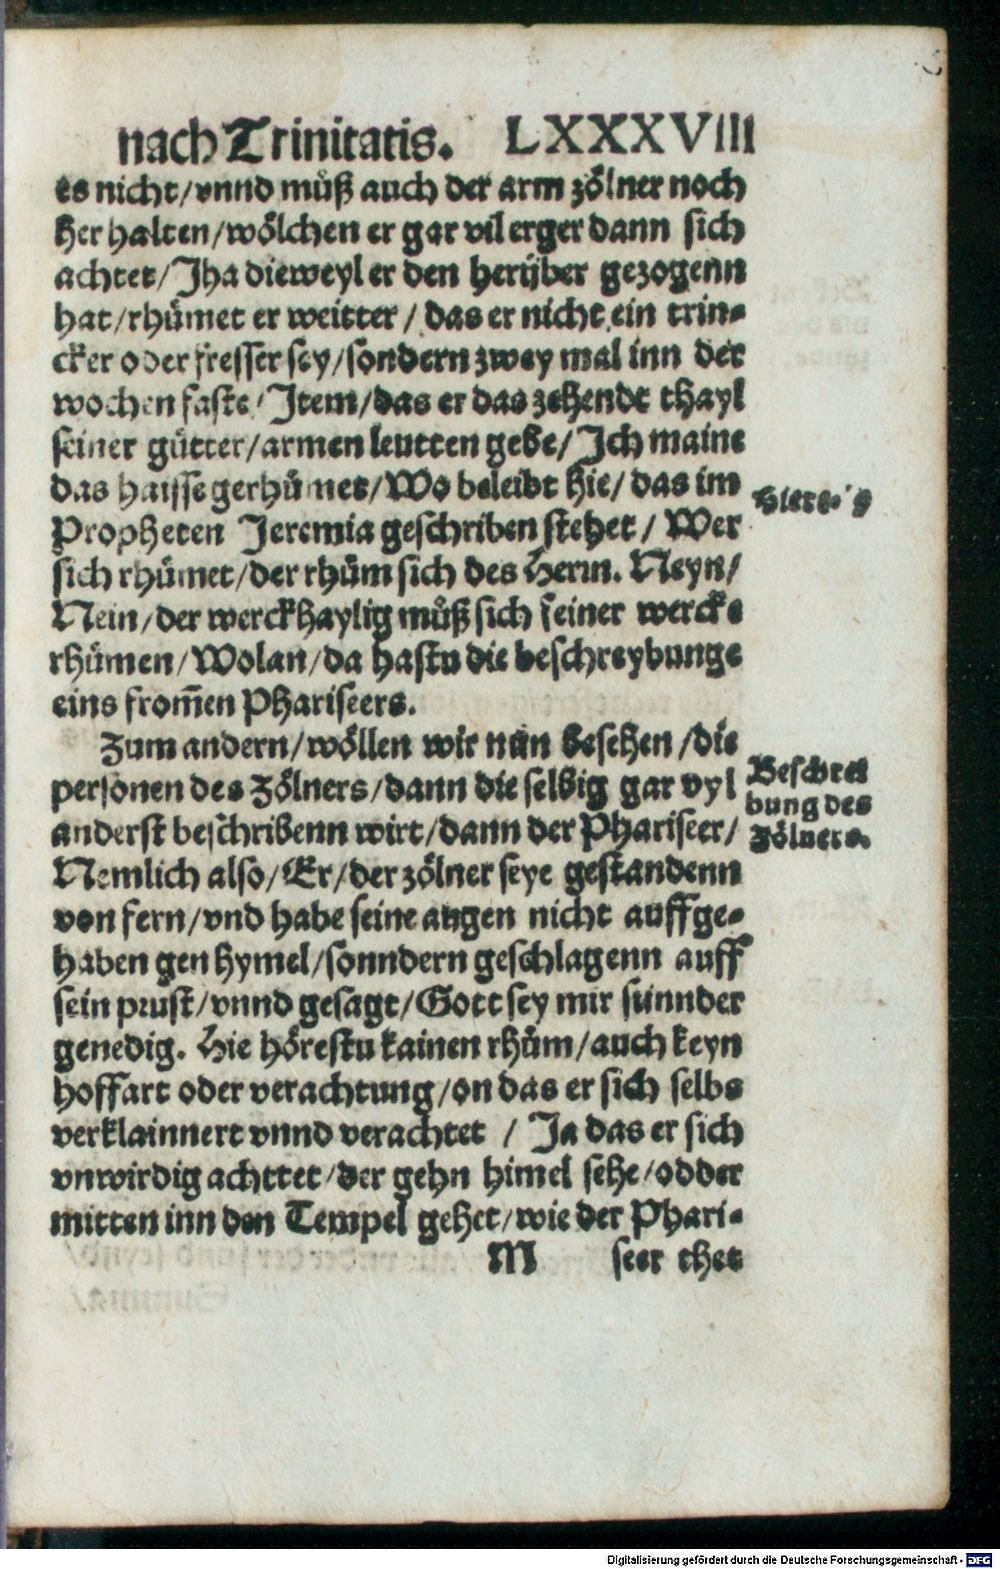 nach Trinitatis. LXXXVIII
es nicht/vnnd müß auch der arm zölner noch
her halten/wölchen er gar vil erger dann sich
achtet/Jha dieweyl er den herüber gezogenn
hat/rhümet er weitter/das er nicht ein trin-
cker oder fresser sey/sondern zwey mal inn der
wochen faste/Jtem/das er das zehende thayl
seiner gütter/armen leutten gebe/Jch maine
das haisse gerhümet/Wo beleibt hie/das im
Propheten Jeremia geschriben stehet/Wer
sich rhümet/der rhüm sich des Herrn. Neyn/
Nein/der werckhaylig můß sich seiner wercke
rhümen/Wolan/da hastu die beschreybunge
eins from̃en Phariseers.
Zum andern/wöllen wir nůn besehen/die
personen des Zölners/dann die selbig gar vyl
Beschrei
bung des
Zölners.
anderst beschribenn wirt/dann der Phariseer/
Nemlich also/Er/der zölner seye gestandenn
von fern/vnd habe seine augen nicht auffge-
haben gen hymel/sonndern geschlagenn auff
sein prust/vnnd gesagt/Gott sey mir sünnder
genedig. Hie hörestu kainen rhům/auch keyn
hoffart oder verachtung/on das er sich selbs
verklainnert vnnd verachtet/Ja das er sich
vnwirdig achttet/der gehn himel sehe/odder
mitten inn den Tempel gehet/wie der Phari-
M seer thet
Digitalisierung gefördert durch die Deutsche Forschungsgemeinschaft - DFG